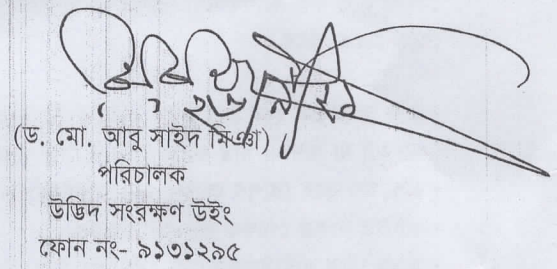 (ড. মো. আবু সাইদ মিঞা)
পরিচালক
উদ্ভিদ সংরক্ষণ উইং
ফোন নং- ৯১৩১২৯৫